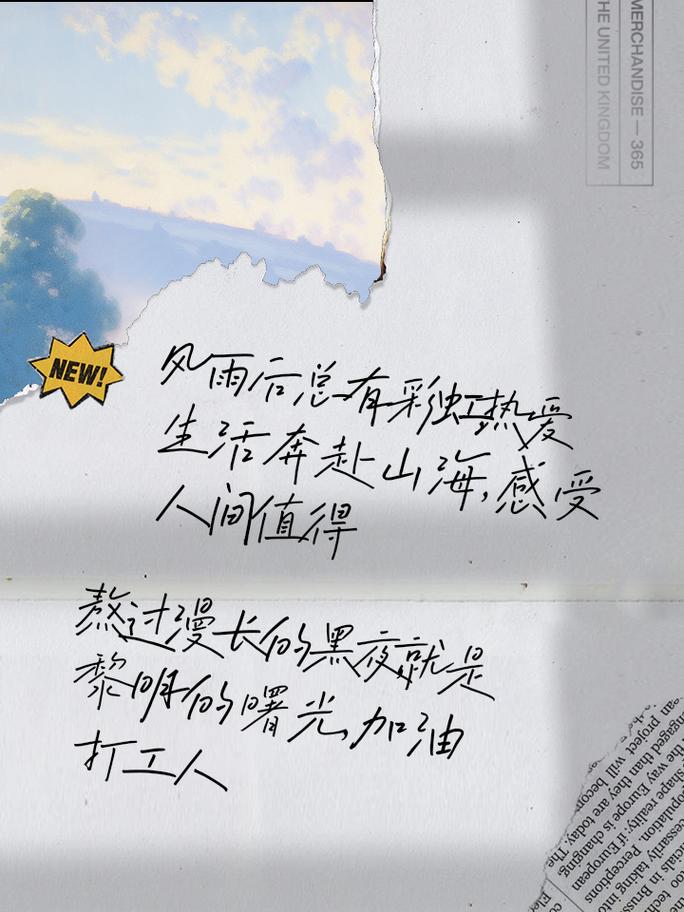 MERCHANDISE — 365
THE UNITED KINGDOM
NEW!
风雨后总有彩虹热爱
生活奔赴山海,感受
人间值得
熬过漫长的黑夜就是
黎明的曙光,加油
打工人
project will becom
ngaged than they are today. The
the way Europe is changing,
shape reality: if European
opulation. Perceptions
cessarily taking into
cials in Bruss
too tech